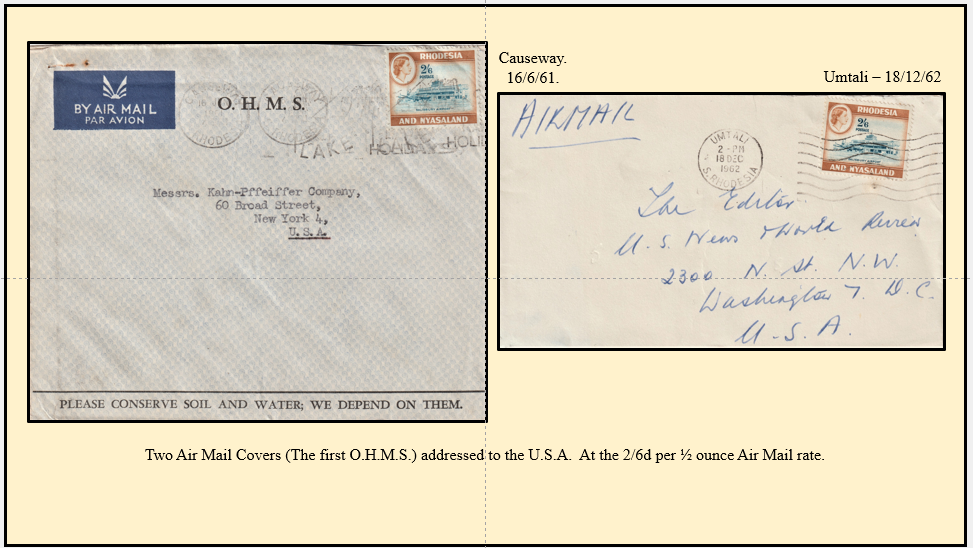 Causeway.
16/6/61.
Umtali – 18/12/62
BY AIR MAIL
PAR AVION
O. H. M. S.
RHODESIA
2/6
POSTAGE
AND NYASALAND
LAKE HOLIDAY HOLI
Messrs. Kahn-Pffeiffer Company,
60 Broad Street,
New York 4,
U.S.A.
PLEASE CONSERVE SOIL AND WATER; WE DEPEND ON THEM.
AIRMAIL
UMTALI
2 - PM
18 DEC
1962
S. RHODESIA
RHODESIA
2/6
POSTAGE
AND NYASALAND
The Editor
U. S. News & World Review
2300 N. St. N.W.
Washington 7. D.C.
U.S.A.
Two Air Mail Covers (The first O.H.M.S.) addressed to the U.S.A. At the 2/6d per ½ ounce Air Mail rate.